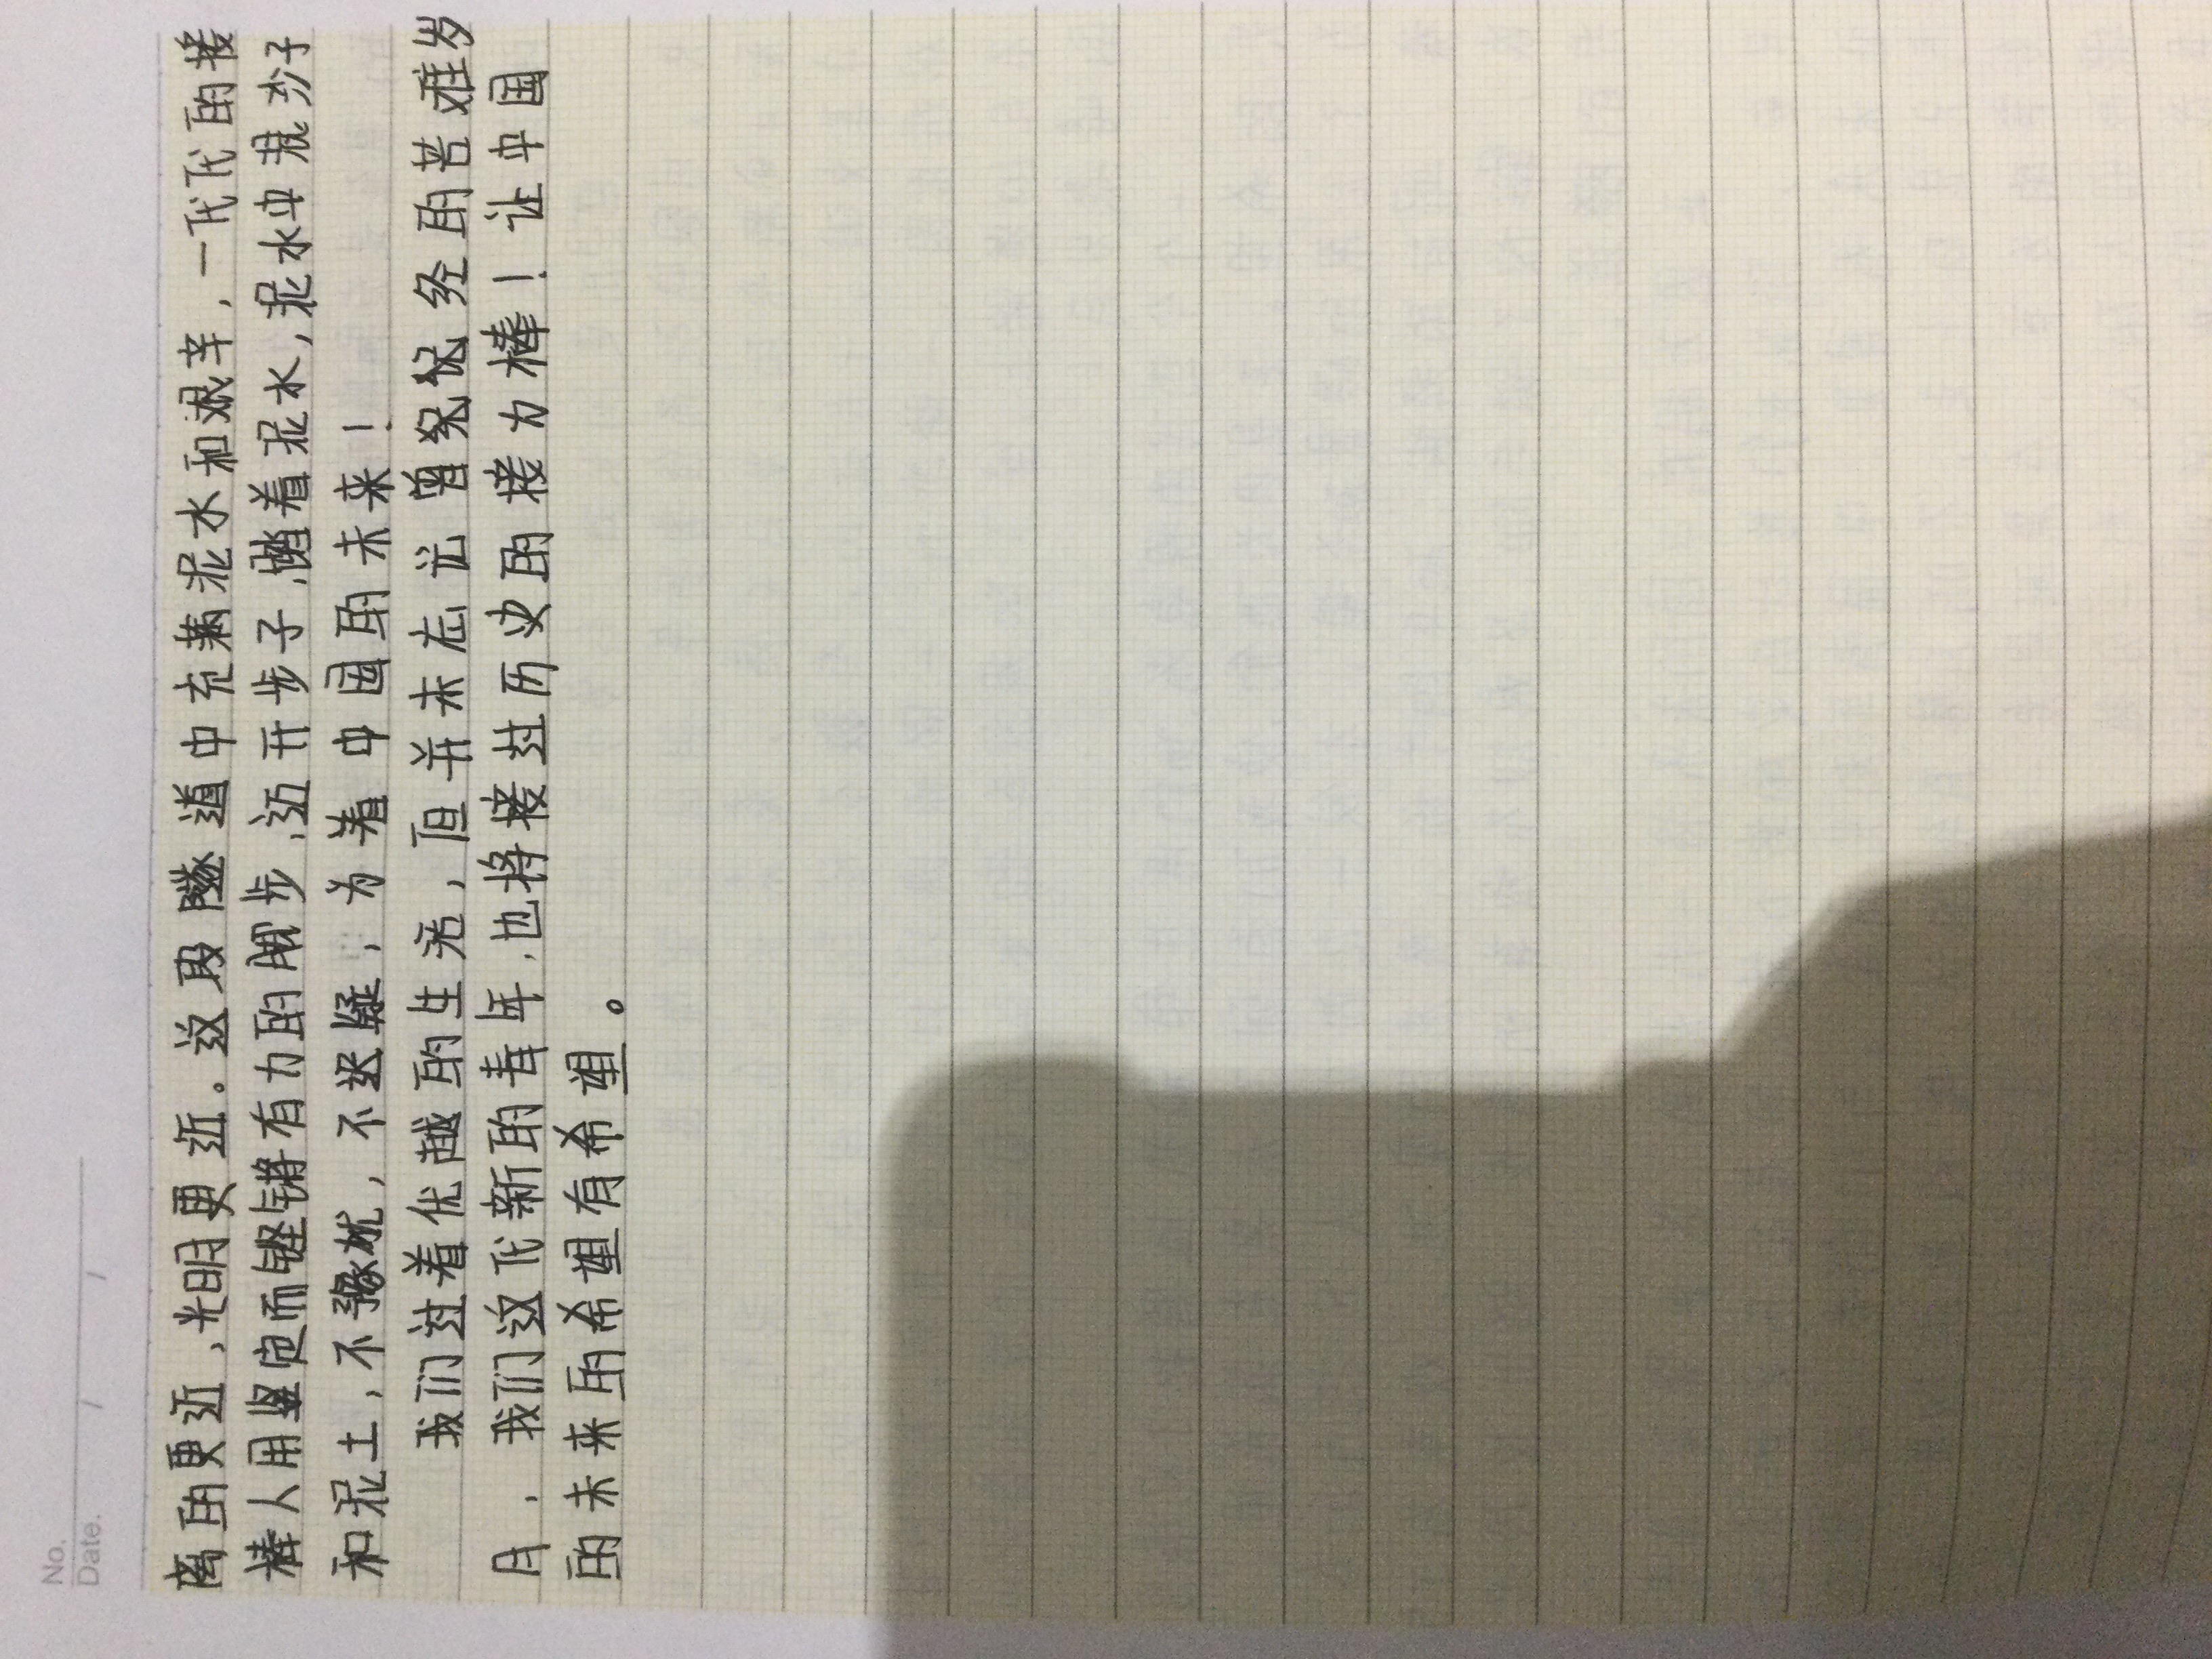 No.
Date.
离的更近,光明更近。这段隧道中充满泥水和艰辛,一代代的接
棒人用坚定而铿锵有力的脚步,迈开步子,踏着泥水,泥水中混沙子
和泥土,不豫犹,不迟疑,为着中国的未来!
我们过着优越的生活,但并未忘记曾经的苦难岁
月,我们这代新的青年,也将接过历史的接力棒!让中国
的未来的希望有希望。